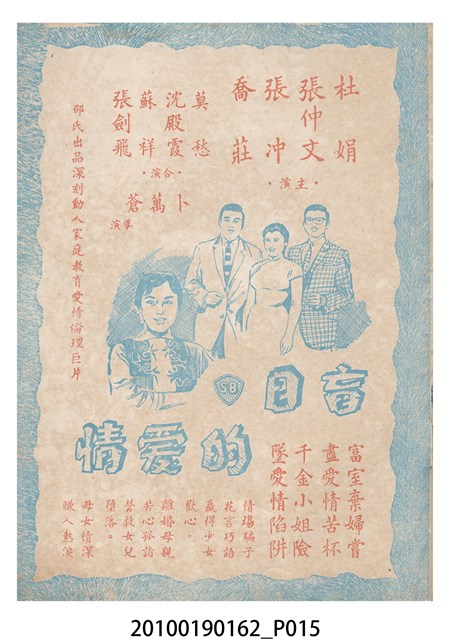 杜娟
張仲文
張冲
喬莊
·主演·
莫愁
沈殿霞
蘇祥
張劍飛
·合演·
卜萬蒼
導演
邵氏出品深刻動人家庭教育愛情倫理巨片
SB
盲目
的愛情
富室棄婦嘗
盡愛情苦杯
千金小姐險
墜愛情陷阱
情場騙子
花言巧語
贏得少女
歡心。
離婚母親
苦心孤詣
營救女兒
墮落。
母女情深
賺人熱淚
20100190162_P015